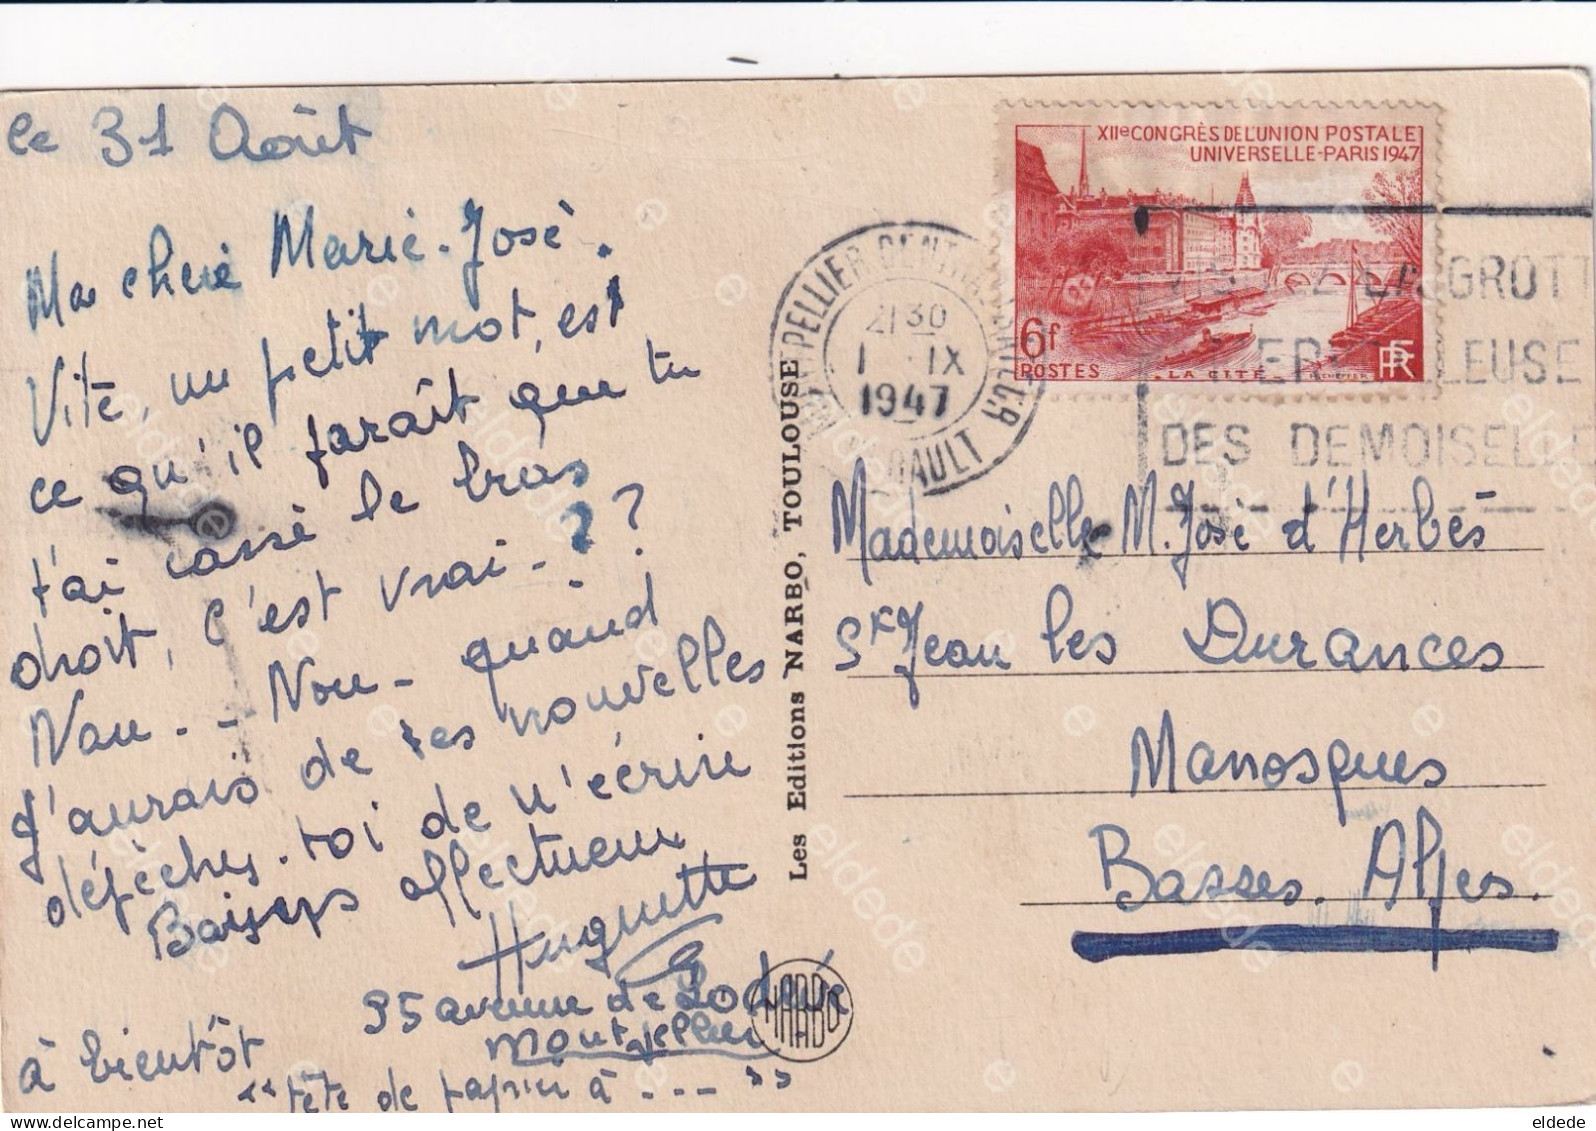 le 31 Août
Ma cherie Marie-José.
Vite, un petit mot, est
ce qu'il paraît que tu
t'ai cassé le bras
droit, c'est vrai - ? ?
Nou - - Nou - quand
J'aurais de tes nouvelles
dépèches-toi de m'écrire
Baisers affectueux
Huguette
95 avenue de Lodève
Montpellier
à bientôt
"tête de papier à ---"
Les Editions NARBO, TOULOUSE
NARBO
XIIe CONGRÈS DE L'UNION POSTALE
UNIVERSELLE-PARIS 1947
6f
POSTES
LA CITÉ
RF
MONTPELLIER CENTRALISATEUR
21 30
1 - IX
1947
HERAULT
VISITEZ LA GROTT
MERVEILLEUSE
DES DEMOISELLE
Mademoiselle M. José d'Herbès
St Jean les Durances
Manosques
Basses. Alpes.
eldede